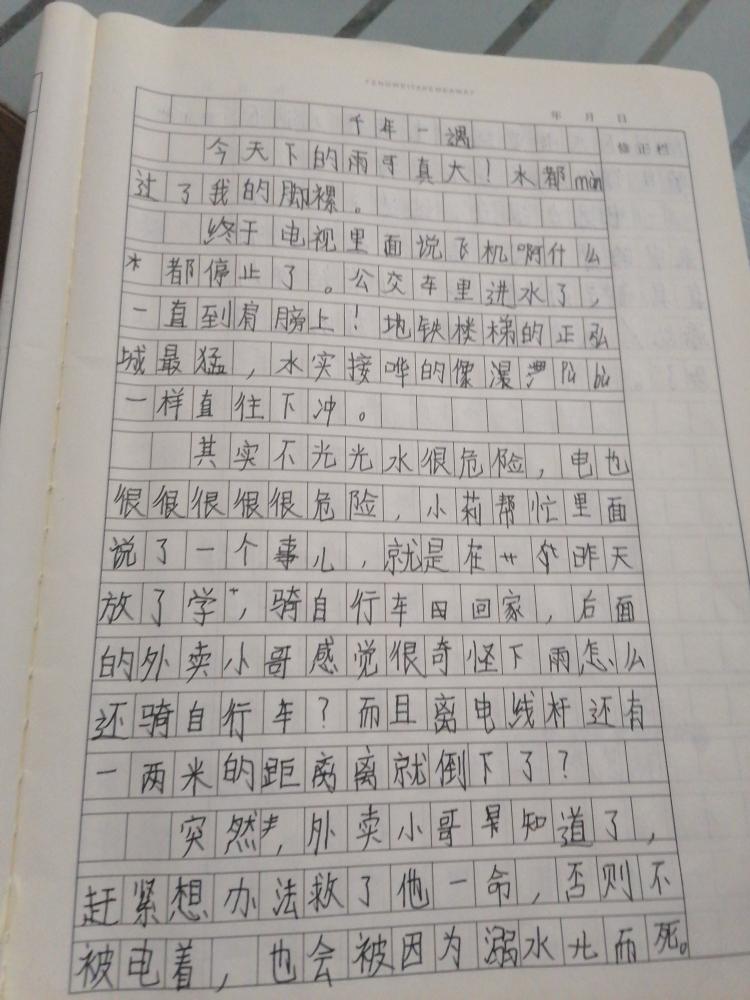 年 月 日
千年一遇
修正栏
今天下的雨可真大！水都màn
过了我的脚裸。
终于电视里面说飞机啊什么
都停止了。公交车里进水了，
一直到肩膀上！地铁楼梯的正弘
城最猛，水实接哗的像瀑pù bù
一样直往下冲。
其实不光光水很危险，电也
很很很很很危险，小莉帮忙里面
说了一个事儿，就是在昨天
放了学，骑自行车回家，后面
的外卖小哥感觉很奇怪下雨怎么
还骑自行车？而且离电线杆还有
一两米的距离离就倒下了？
突然，外卖小哥知道了，
赶紧想办法救了他一命，否则不
被电着，也会被因为溺水而死。